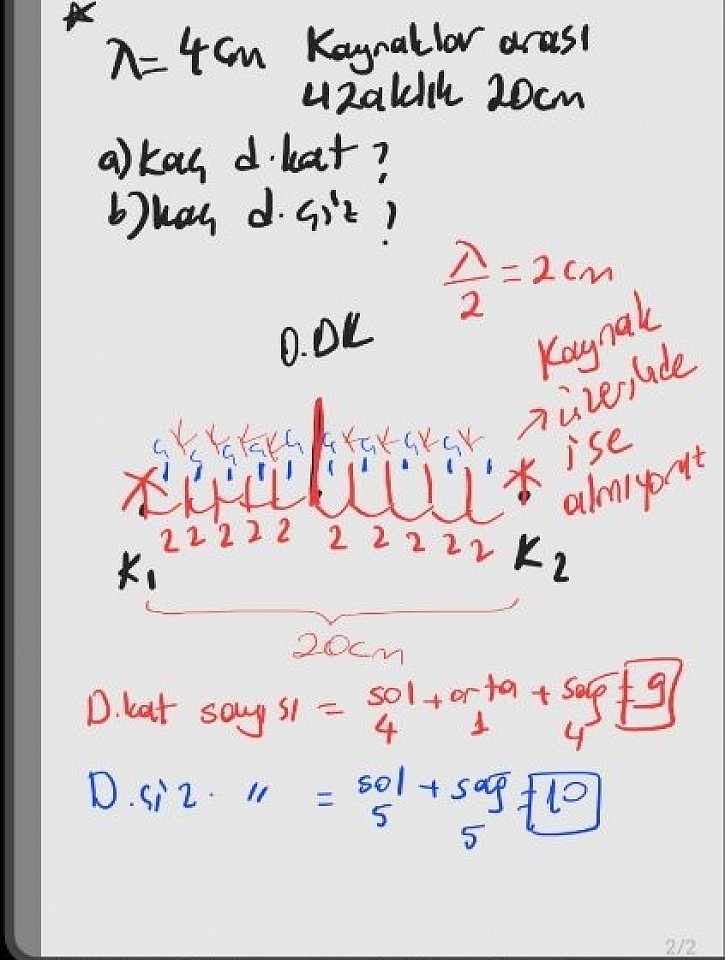 λ = 4cm Kaynaklar arası
uzaklık 20cm
a) kaç d.kat ?
b) kaç d.çiz ?
λ/2 = 2cm
0.DK
Kaynak
üzerinde
ise
almıyoruz
Ç K Ç K Ç K Ç K Ç Ç K Ç K Ç K Ç K
2 2 2 2 2 2 2 2 2 2
K1 K2
20cm
D.kat sayısı = sol + orta + sağ = 9
4 1 4
D.çiz. " = sol + sağ = 10
5 5
2/2